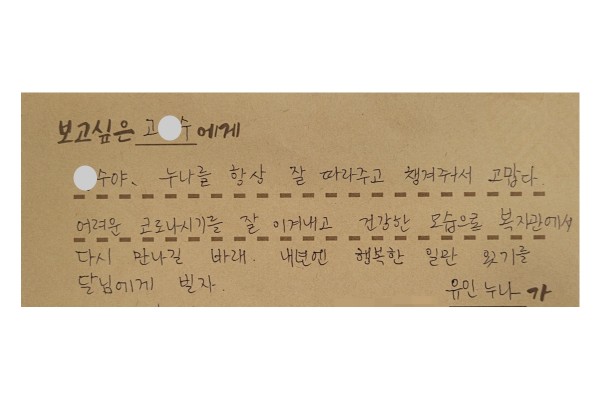 보고싶은 고 수에게
수야. 누나를 항상 잘 따라주고 챙겨줘서 고맙다.
어려운 코로나시기를 잘 이겨내고 건강한 모습으로 복지관에서
다시 만나길 바래. 내년엔 행복한 일만 있기를
달님에게 빌자.
유인 누나 가